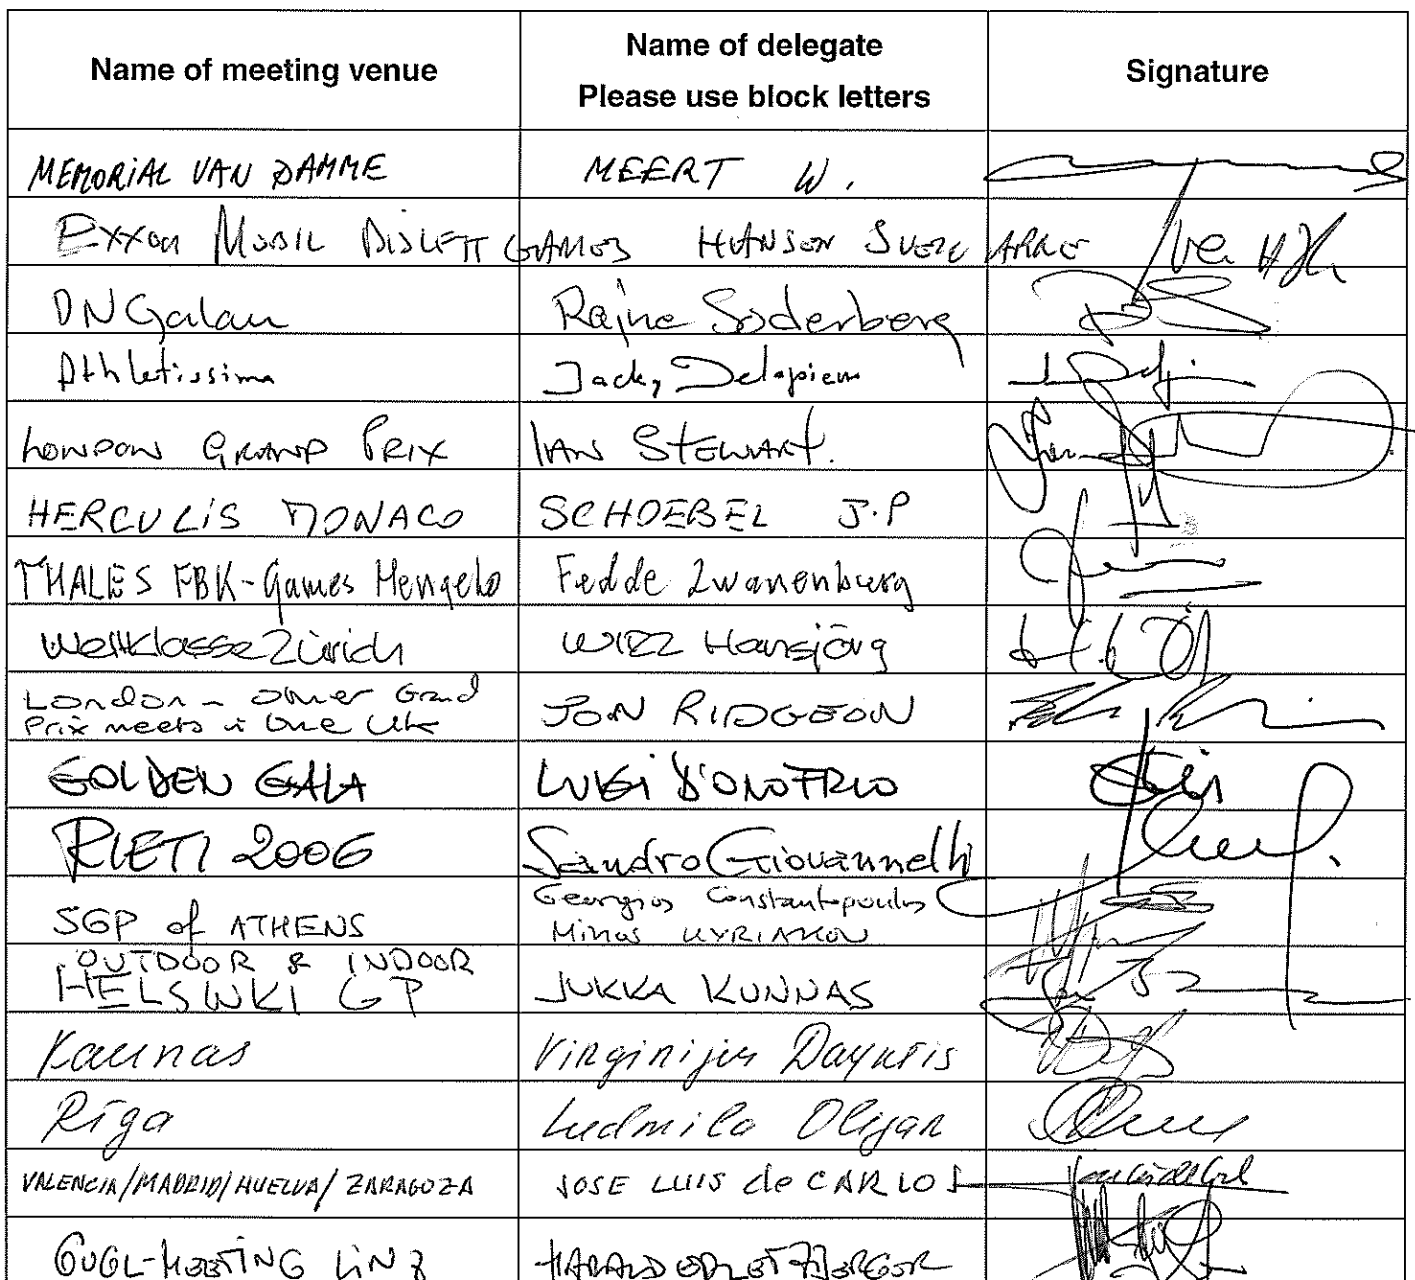 Name of meeting venue
Name of delegate
Please use block letters
Signature
MEMORIAL VAN DAMME MEERT W.
EXXON MOBIL BISLETT GAMES HANSEN SVEIN ARNE
DN Galan Rajne Soderberg
Athletissima Jacky Delapierre
LONDON GRAND PRIX IAN STEWART.
HERCULIS MONACO SCHOEBEL J.P
THALES FBK-Games Hengelo Fedde Zwanenburg
Weltklasse Zürich WIRZ Hansjörg
London - other Grand JON RIDGEON
Prix meets in the UK
GOLDEN GALA LUIGI D'ONOFRIO
RIETI 2006 Sandro Giovannelli
SGP of ATHENS Georgios Constantopoulos
Minos KYRIAKOU
OUTDOOR & INDOOR
HELSINKI GP JUKKA KUNNAS
Kaunas Virginijus
Rīga Ludmila Olijar
VALENCIA/MADRID/HUELVA/ZARAGOZA JOSE LUIS de CARLOS
GUGL-MEETING LINZ HARALD